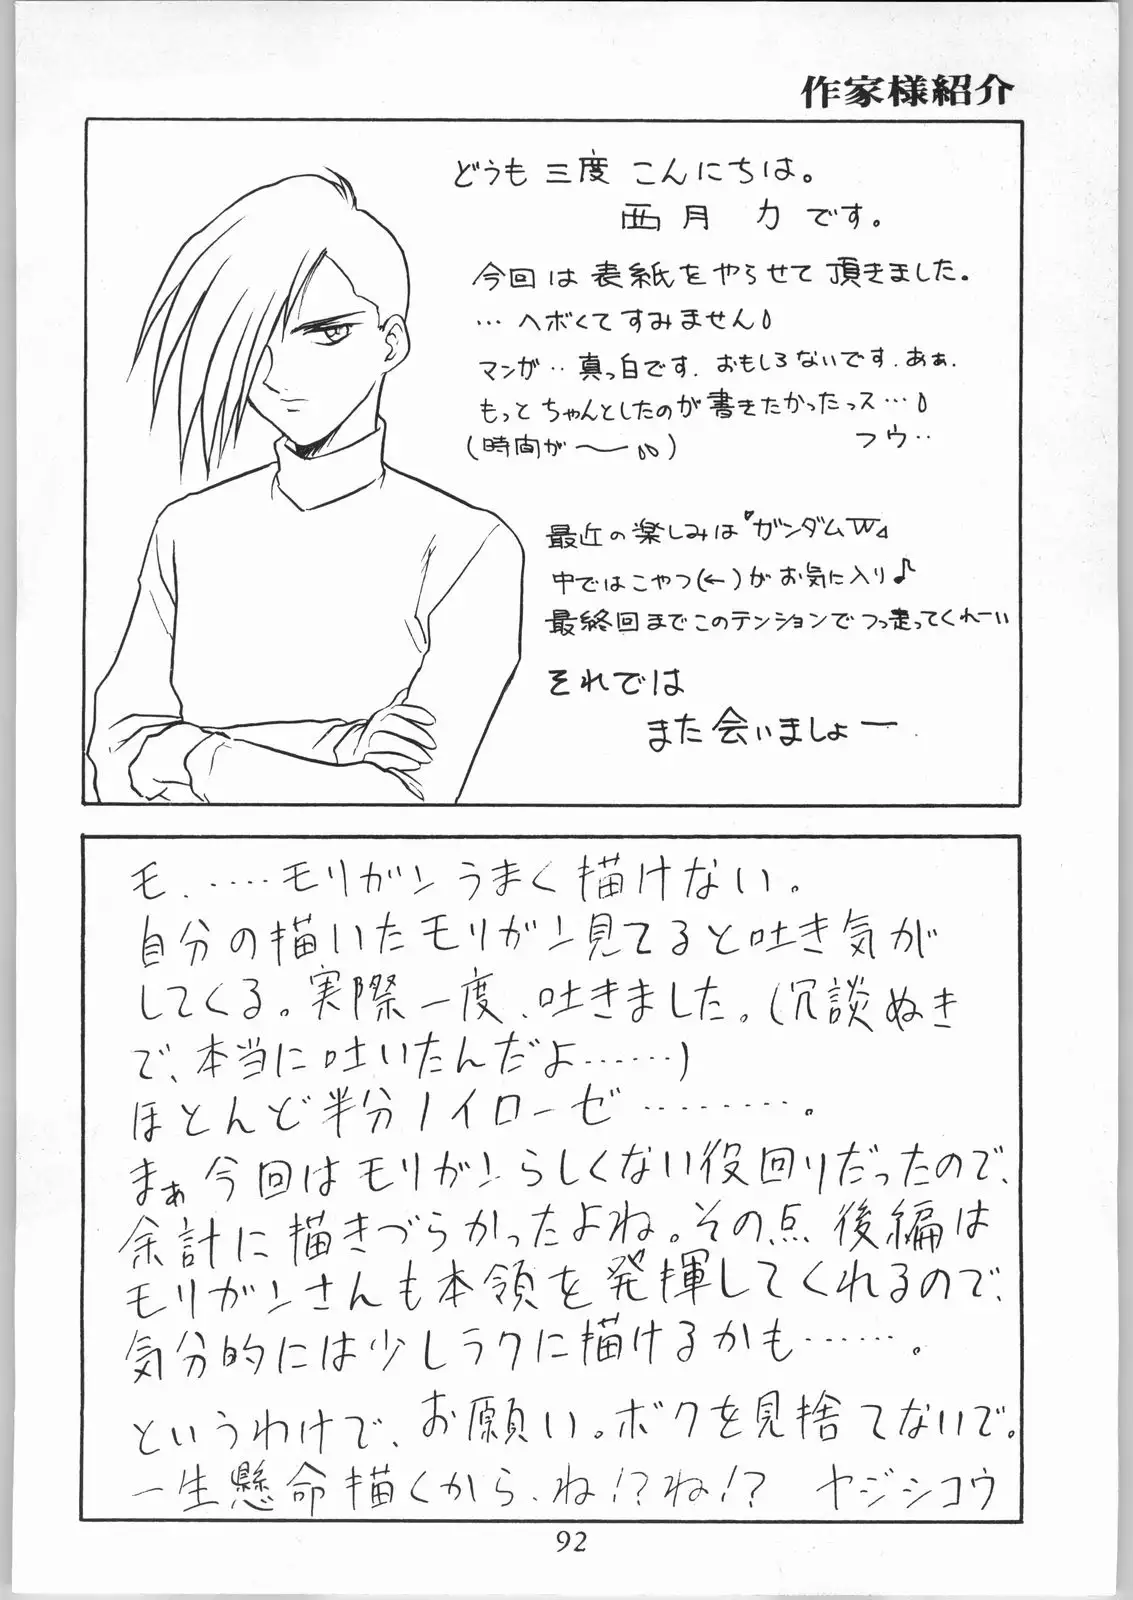 作家様紹介
どうも 三度 こんにちは。
西月 力 です。
今回は 表紙を やらせて 頂きました。
… ヘボくて すみません
マンガ‥ 真っ白です. おもしろないです. あぁ.
もっと ちゃんとしたのが 書きたかったっス…
(時間が〜)
フウ‥
最近の楽しみは"ガンダムW"
中ではこやつ(←)が お気に入り♪
最終回まで このテンションで つっ走ってくれーい
それでは
また 会いましょー
モ.……モリガンうまく描けない。
自分の描いたモリガン見てると吐き気が
してくる。実際一度、吐きました。(冗談ぬき
で、本当に吐いたんだよ……)
ほとんど半分ノイローゼ………。
まぁ今回はモリガンらしくない役回りだったので、
余計に描きづらかったよね。その点後編は
モリガンさんも本領を発揮してくれるので、
気分的には少しラクに描けるかも……。
というわけで、お願い。ボクを見捨てないで。
一生懸命描くから、ね!?ね!? ヤジシコウ
92